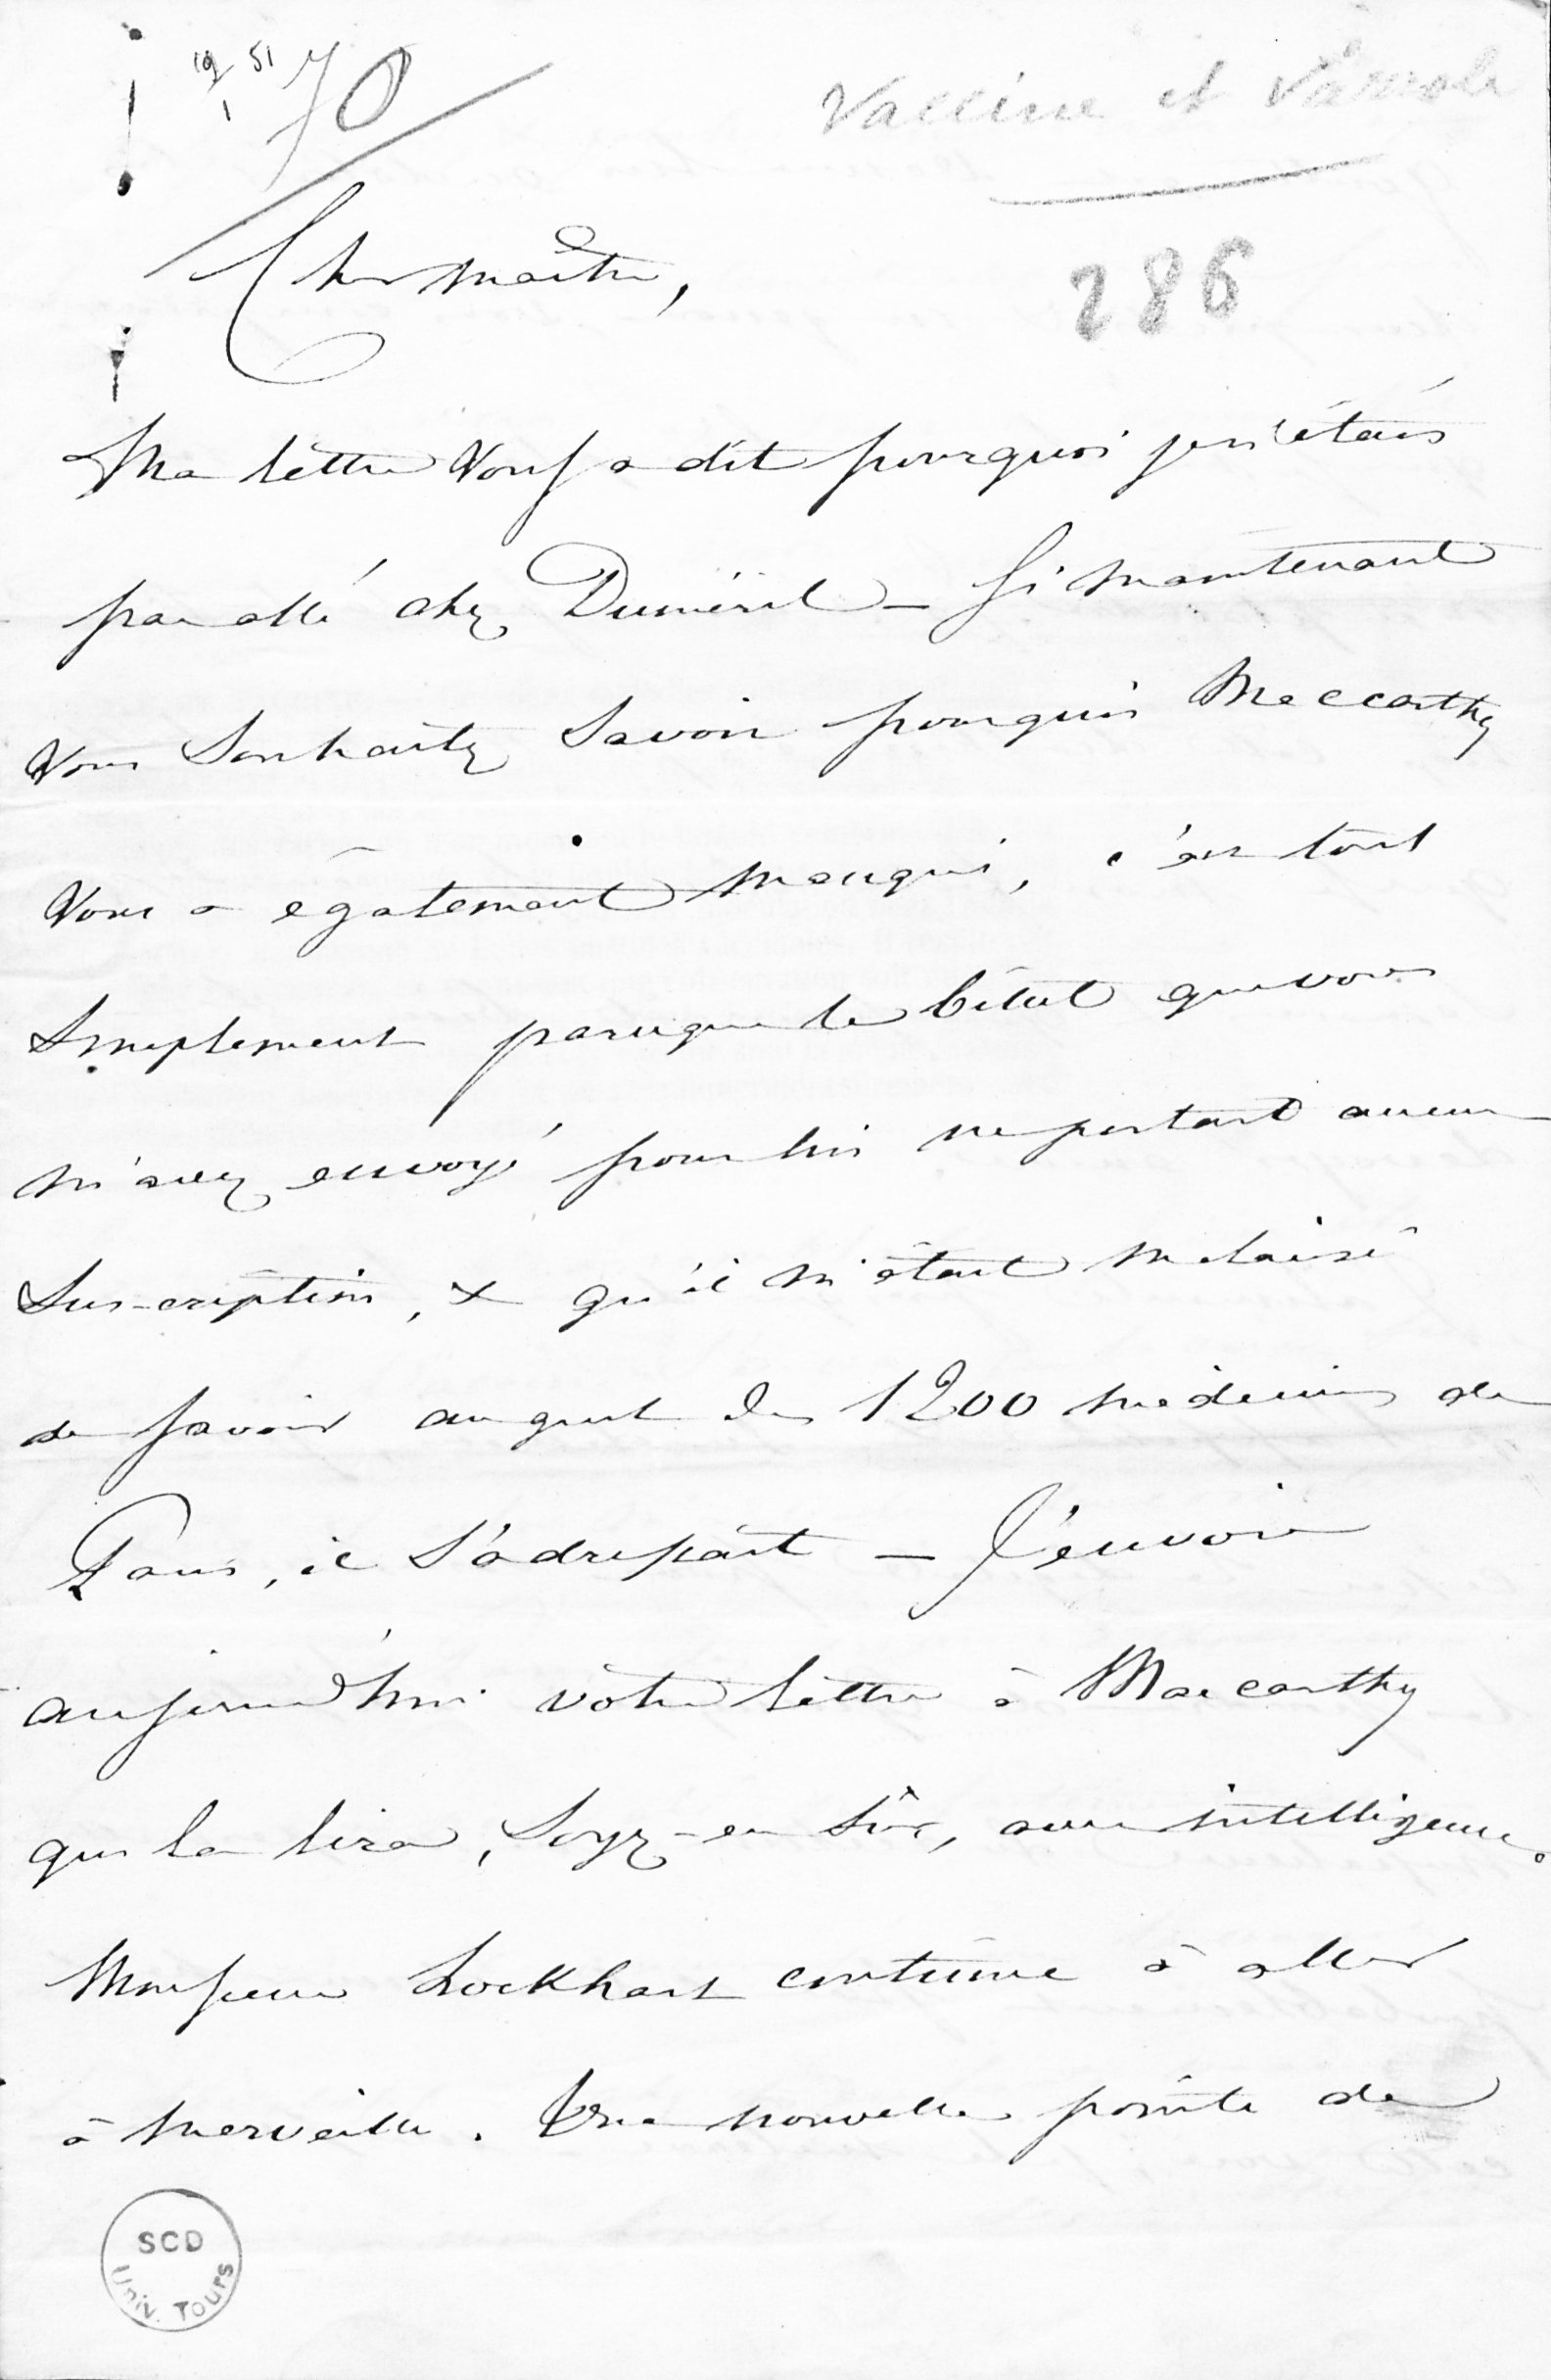 19/1 51
70
Vaccine et Variole
286
Cher maître,
Ma lettre vous a dit pourquoi je n'étais
pas allé chez Duméril – Si maintenant
vous souhaitez savoir pourquoi Maccarthy
vous a également manqué, c'est tout
simplement parceque le billet que vous
m'avez envoyé pour lui ne portait aucune
suscription, & qu'il m'était malaisé
de savoir auquel des 1200 médecins de
Paris, il s'adressait – J'envoie
aujourd'hui votre lettre à Maccarthy
qui la lira, soyez-en sûr, avec intelligence.
Monsieur Lockhart continue à aller
à merveille. Une nouvelle pointe de
SCD
Univ. Tours